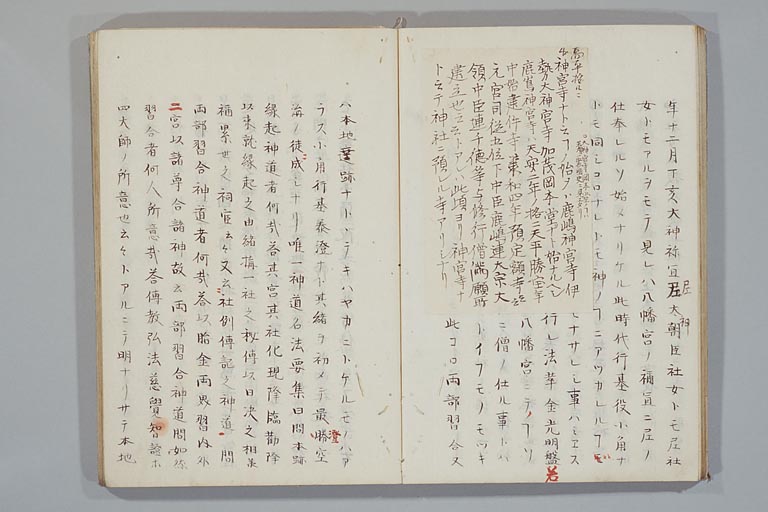 年十二月丁亥大神祢宜尼大朝臣社女トモ尼社
女トモアルヲモテ見レハ八幡宮ノ祢宜ニ尼ノ
仕奉レルソ始メナリケル此時代行基役小角ナ
トモ同シコロナレトモ神ノフニアツカレルフ
トナサレシ事ハミエス
行レ法華金光明
八幡宮ニテノフソ
ニ僧ノ仕ル事トハ
トイフモノモツキ
此コロ両部習合又
神宮寺ト云フノ始ヲハ鹿嶋神宮寺伊
勢大神宮寺加茂岡本堂ナト始ナルヘシ
鹿嶌神宮寺ハ天安三年ノ格ニ天平勝宝年
中所建件寺承和四年預定額寺云々
元宮司従五位下中臣鹿嶋連大宗大
領中臣連千徳等与修行僧満願所
建立也云云トアレハ此頃ヨリ神宮寺ナ
ト云テ神社ニ預レル寺アリシナリ
ハ本地垂跡ナトヽテキハヤカニトケルモノハア
ラス小角行基泰澄ナト其緒ヲ初メテ最澄空
海ノ徒成シナリ唯一神道名法要集曰問本跡
縁起神道者何哉答其宮其社化現降臨勧降
以来就縁起之由緒搆一社之秘傳以口決之相承
稱累世之祠官云々又云社例傳記之神道問
両部習合神道者何哉答以胎金両界習内外
二宮以諸尊合諸神故云両部習合神道問如
習合者何人所意哉答傳教弘法慈覺智證
四大師ノ所意也云々トアルニテ明ナリサテ本地